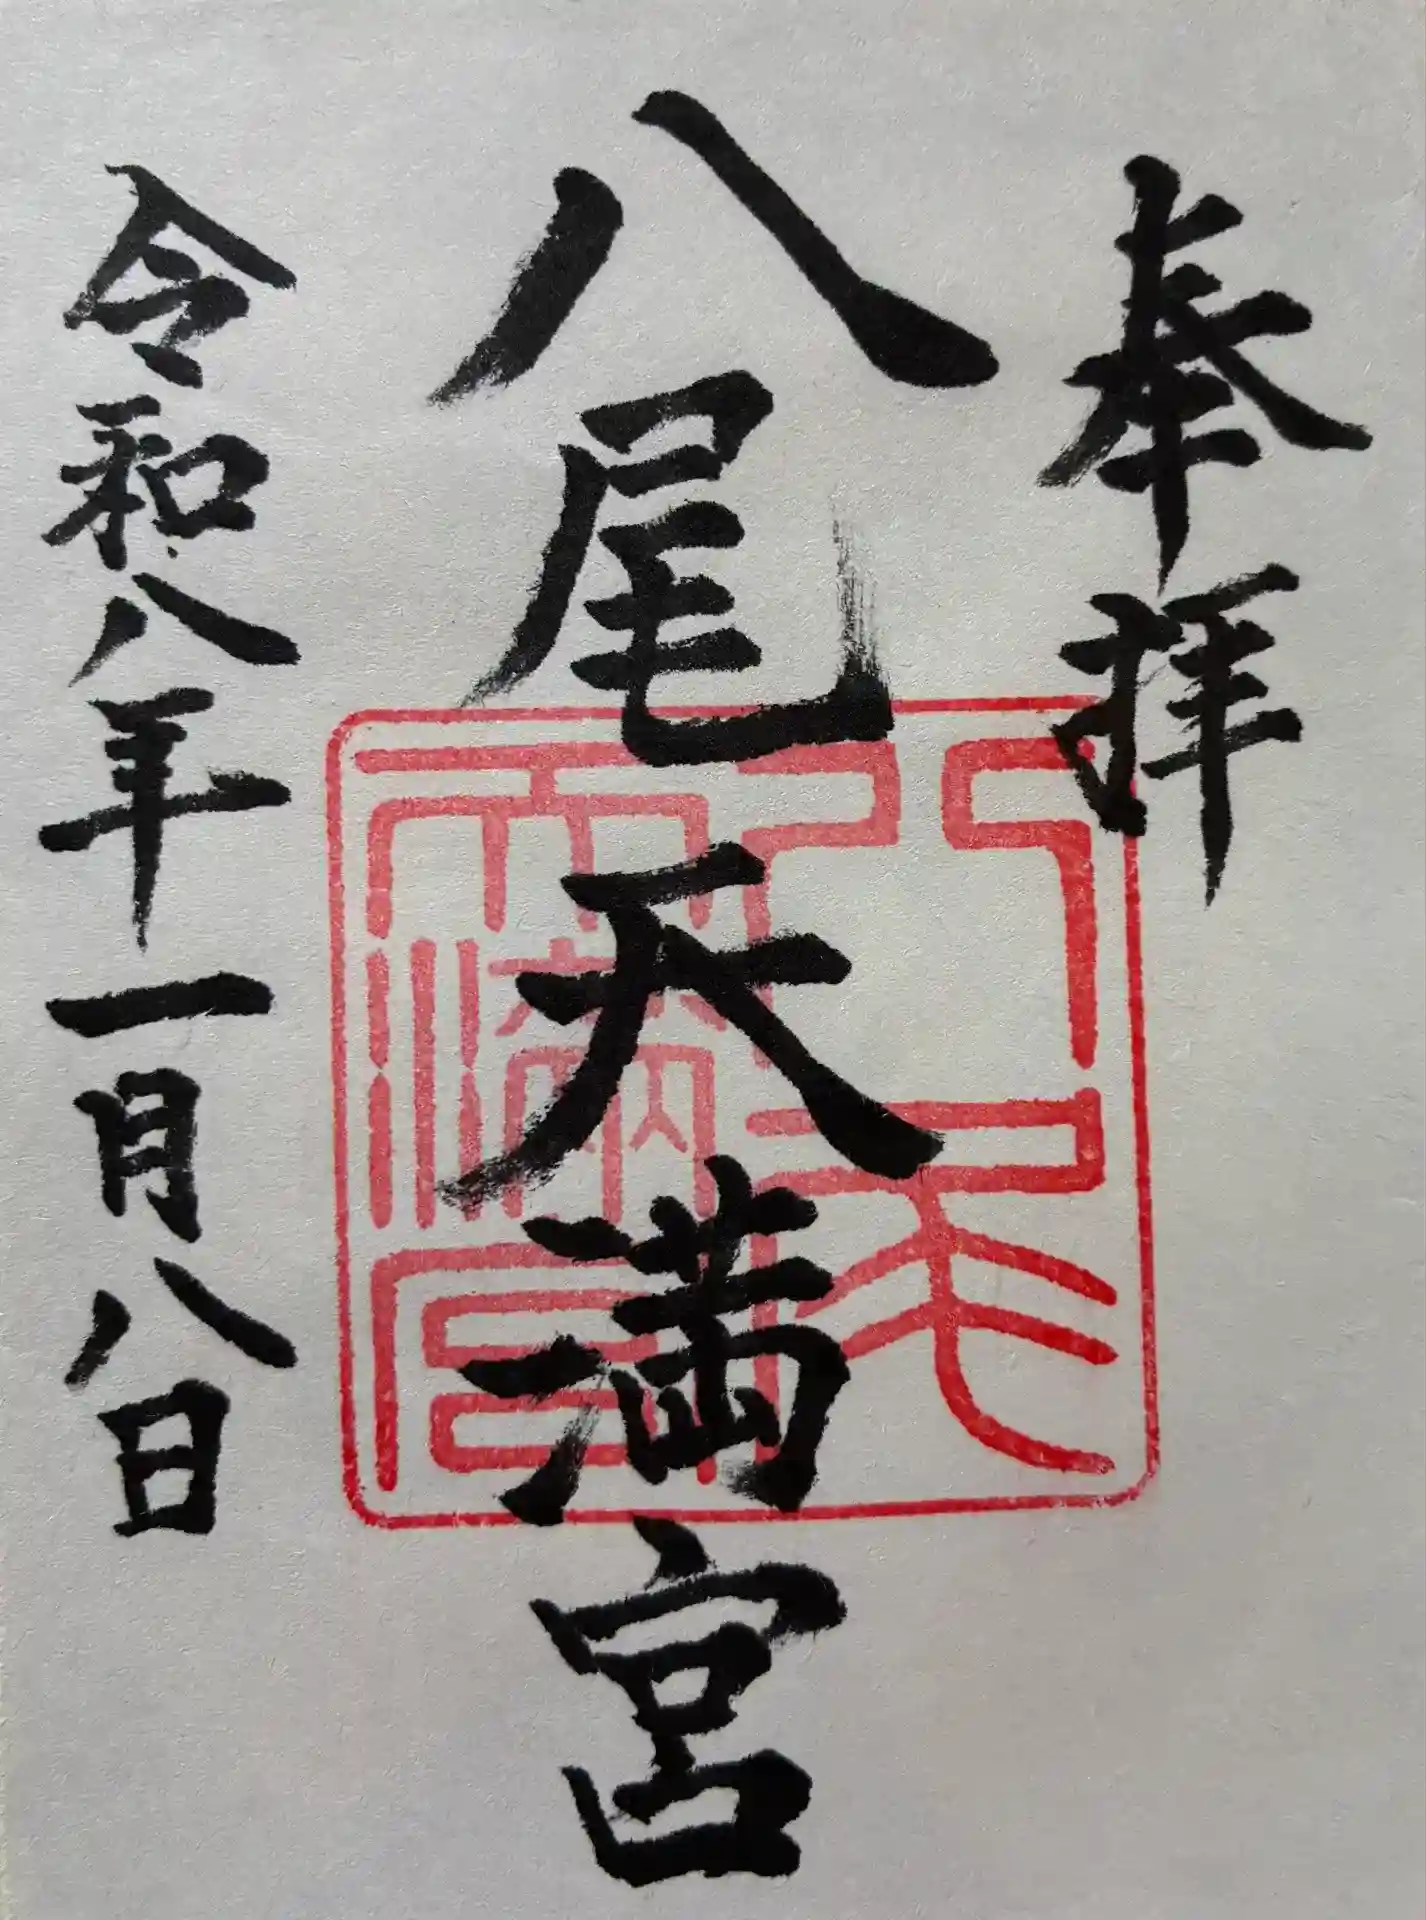 奉拝
八尾天満宮
令和八年一月八日
八尾天満宮